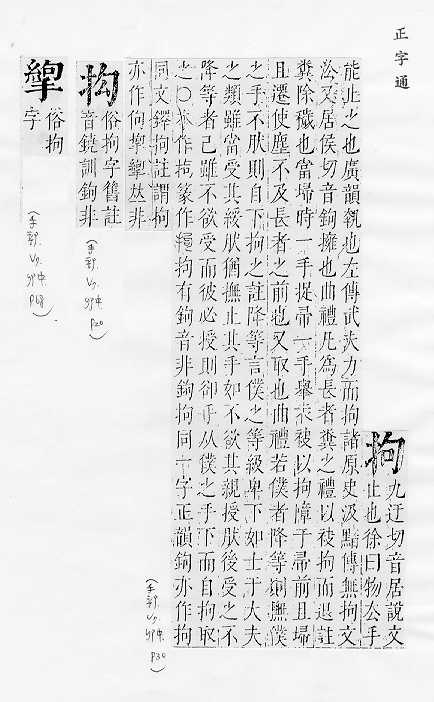 正字通
拘 九迂切音居說文
止也徐曰物去手
能止之也廣韻執也左傳武夫力而拘諸原史汲黯傳無拘文
法又居侯切音鉤擁也曲禮凡為長者糞之禮以袂拘而退註
糞除穢也當埽時一手捉帚一手舉衣袂以拘障于帚前且埽
且遷使塵不及長者之前也又取也曲禮若僕者降等則撫僕
之手不肰則自下拘之註降等言僕之等級卑下如士于大夫
之類雖當受其綏肰猶撫止其手如不欲其親授肰後受之不
降等者己雖不欲受而彼必授則卻手从僕之手下而自拘取
之○ 作 篆作 拘有鉤音非鉤拘同一字正韻鉤亦作拘
同文鐸拘註謂拘
亦作佝 非
(手部. P30)
抅 俗拘字舊註
音鐃訓鉤非
(手部. P20)
俗拘
字
(手部.)